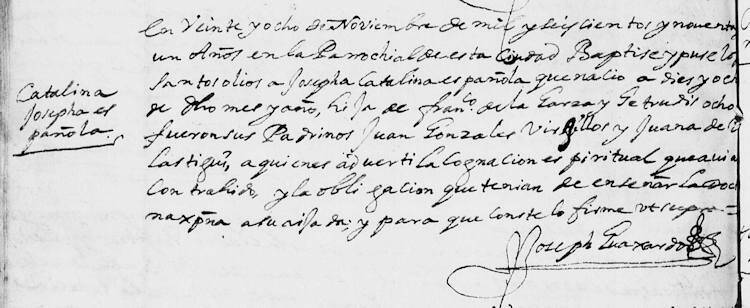 Catalina
Josepha es
pañola.
En Veinte y ocho de Noviembre de mil y seis cientos y noventa y
un Años en la Parrochial de esta Ciudad Baptise y puse los
santos olios a Josepha Catalina española que nacio a dies y ocho
de dho mes y año, hija de franco. de la Garza y Getrudis ochoa
fueron sus Padrinos Juan Gonzales y Juana de
Castigui, a quienes advertí la cognacion espiritual que avian
contrahido, y la obligacion que tenian de enseñar la Doc
na xpna a su aijada; y para que conste lo firme vt supra=
Joseph Guaxardo